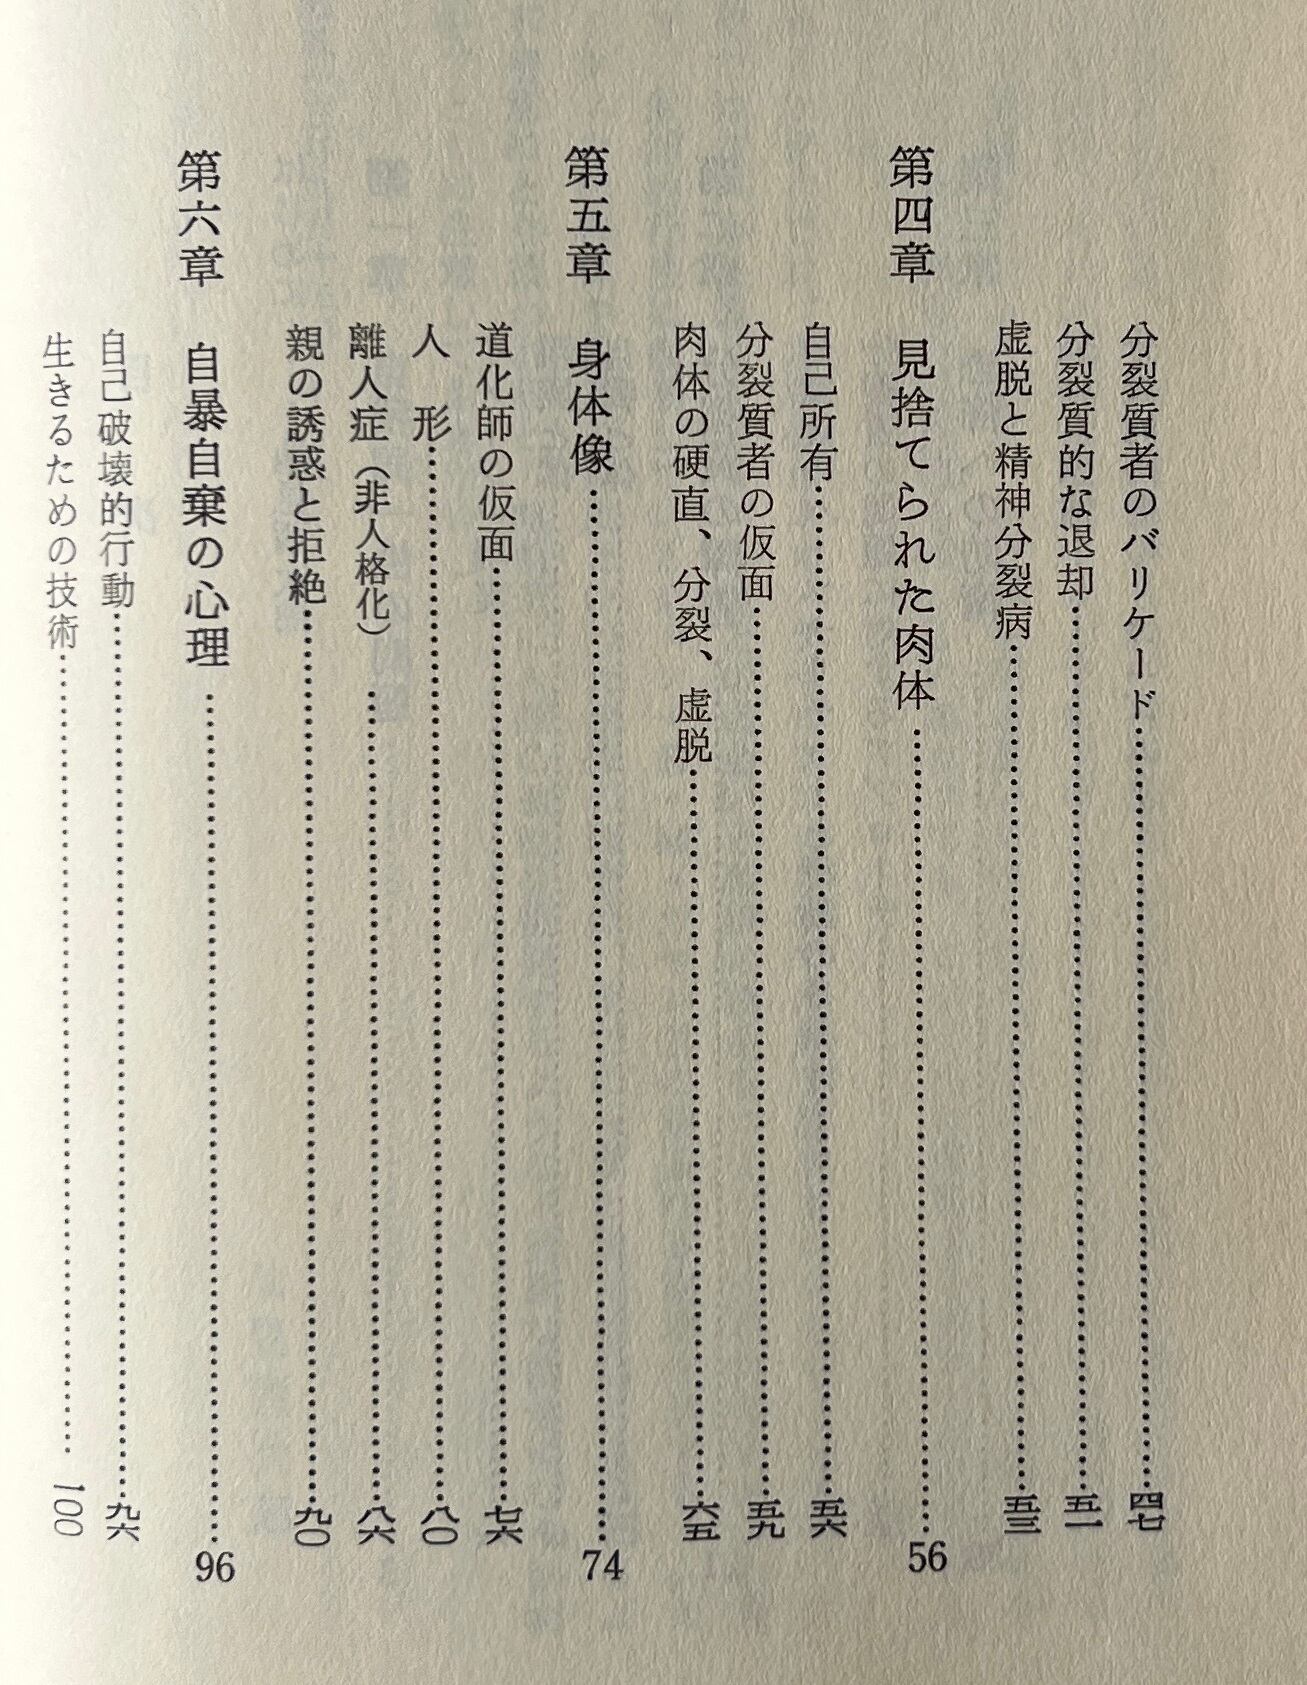 分裂質者のバリケード……四七
分裂質的な退却……五一
虚脱と精神分裂病……五三
第四章　見捨てられた肉体……56
自己所有……五六
分裂質者の仮面……五九
肉体の硬直、分裂、虚脱……六五
第五章　身体像……74
道化師の仮面……七六
人　形……八〇
離人症（非人格化）……八六
親の誘惑と拒絶……九〇
第六章　自暴自棄の心理……96
自己破壊的行動……九六
生きるための技術……100